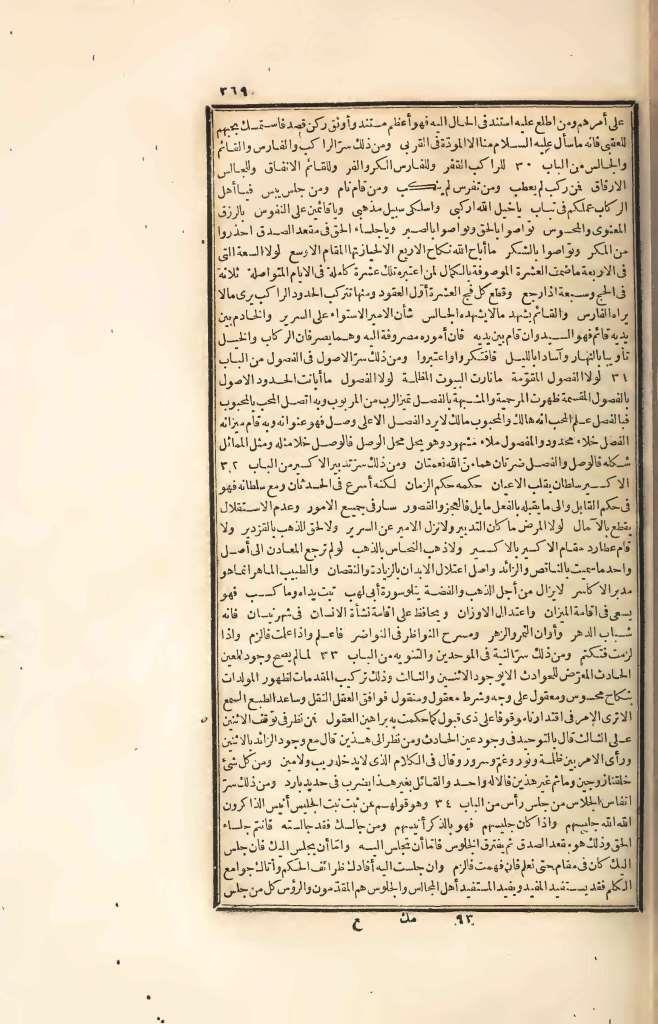 ٣٦٩
على أمرهم ومن اطلع عليه استند فى الحال اليه فهو أعظم مستند وأوثق ركن قصد فاستمسك بحبهم
للعقبى فانه ما سأل عليه السلام منا الا المودة فى القربى ومن ذلك سر الراكب والفارس والقائم
والجالس من الباب ٣٠ للراكب القفر وللفارس الكر والفر وللقائم الاتفاق وللجالس
الارفاق فمن ركب لم يعطب ومن تفرس لم ينكب ومن قام نام ومن جلس يبس فيا أهل
الركاب عملكم فى تباب ياخيل الله اركبى واسلكى سبيل مذهبى وياقائمين على النفوس بالرزق
المعنوى والمحسوس تواصوا بالحق وتواصوا بالصبر ويا جلساء الحق فى مقعد الصدق احذروا
من المكر وتواصوا بالشكر ما أباح الله نكاح الاربع الا لحيازتها المقام الاوسع لولا السعة التى
فى الاربعة ما ضمت العشرة الموصوفة بالكمال لمن اعتبره تلك عشرة كاملة فى الايام المتواصلة ثلاثة
فى الحج وسبعة اذا رجع وقطع كل فج العشرة أول العقود ومنها تتركب الحدود الراكب يرى مالا
يراه الفارس والقائم يشهد مالا يشهده الجالس شأن الامير الاستواء على السرير والخادم بين
يديه قائم فهو السيد وان قام بين يديه فان أموره مصروفة اليه وهما يصرفان الركاب والخيل
تأويبا بالنهار وآسادا بالليل فافتكروا واعتبروا ومن ذلك سر الاصول فى الفصول من الباب
٣١ لولا الفصول المقومة ما نارت البيوت المظلمة لولا الفصول ما أبانت الحدود الاصول
بالفصول المقسمة ظهرت المرحمية والمشبهة بالفصل تميز الرب من المربوب وبه اتصل المحب بالمحبوب
فبالفصل علم المحب انه هالك والمحبوب مالك لا يرد الفصل الا على وصل فهو عنوانه وبه قام ميزانه
الفصل خلاء محدود والمفصول ملاء مشهود وهو يحل محل الوصل فالوصل خلا مثله ومثل المماثل
شكله فالوصل والفصل ضرتان هما من الله نعمتان ومن ذلك سر تدبير الاكسير من الباب ٣٢
الاكسير سلطان يقلب الاعيان حكمه حكم الزمان لكنه أسرع فى الحدثان ومع سلطانه فهو
فى حكم القابل والى ما يقبله بالفعل مايل فالعجز والقصور سار فى جميع الامور وعدم الاستقلال
يقطع بالآمال لولا المرض ما كان التدبير ولا نزل الامير عن السرير ولا لحق الذهب بالقزدير ولا
قام عطارد مقام الاكسير بالاكسير ولا ذهب النحاس بالذهب لو لم ترجع المعادن الى أصل
واحد ما سميت بالناقص والزائد واصل اعتلال الابدان بالزيادة والنقصان والطبيب الماهر انما هو
مدبر الاكاسر لا يزال من أجل الذهب والفضة يتلو سورة أبى لهب تبت يداه وما كسب فهو
يسعى فى اقامة الميزان واعتدال الاوزان ويحافظ على اقامة نشأة الانسان فى شهر نيسان فانه
شباب الدهر وأوان الثمر والزهر ومسرح النواظر فى النواضر فاعلم واذا علمت فالزم واذا
لزمت فتكتم ومن ذلك سر النية فى الموحدين والثنويه من الباب ٣٣ لما لم يصح وجود لعين
الحادث المعرض للحوادث الا بوجود الاثنين والثالث وذلك تركيب المقدمات لظهور المولدات
بنكاح محسوس ومعقول على وجه وشرط معقول ومنقول فوافق العقل النقل وساعد الطبع السمع
الا ترى الامر فى اقتداءنا وقوفا على ذى قبول كما حكمت به براهين العقول فمن نظر فى توقف الاثنين
على الثالث قال بالتوحيد فى وجود عين الحادث ومن نظر الى هذين قال مع وجود الزائد بالاثنين
ورأى الامر بين ظلمة ونور وغم وسرور وقال فى الكلام الذى لا يدخله ريب ولا مين ومن كل شئ
خلقنا زوجين وما ثم غير هذين فالاله واحد والقائل بغير هذا يضرب فى حديد بارد ومن ذلك سر
انفاس الجلاس من جلس رأس من الباب ٣٤ وهو قولهم من ثبت نبت الجليس أنيس الذاكرون
الله الله جليسهم واذا كان جليسهم فهو بالذكر أنيسهم ومن جالسك فقد جالسته فانتم جلساء
الحق وذلك هو مقعد الصدق ثم يفترق الجلوس فاما أن تجلس اليه واما أن يجلس اليك فان جلس
اليك كان فى مقام حتى نعلم فان فهمت فالزم وان جلست اليه أفادك طرائف الحكم وآتاك جوامع
الكلم فقد يستفيد المفيد ويفيد المستفيد أهل المجالس والجلوس هم المقدمون والرؤس كل من جلس
٩٣ مك ع